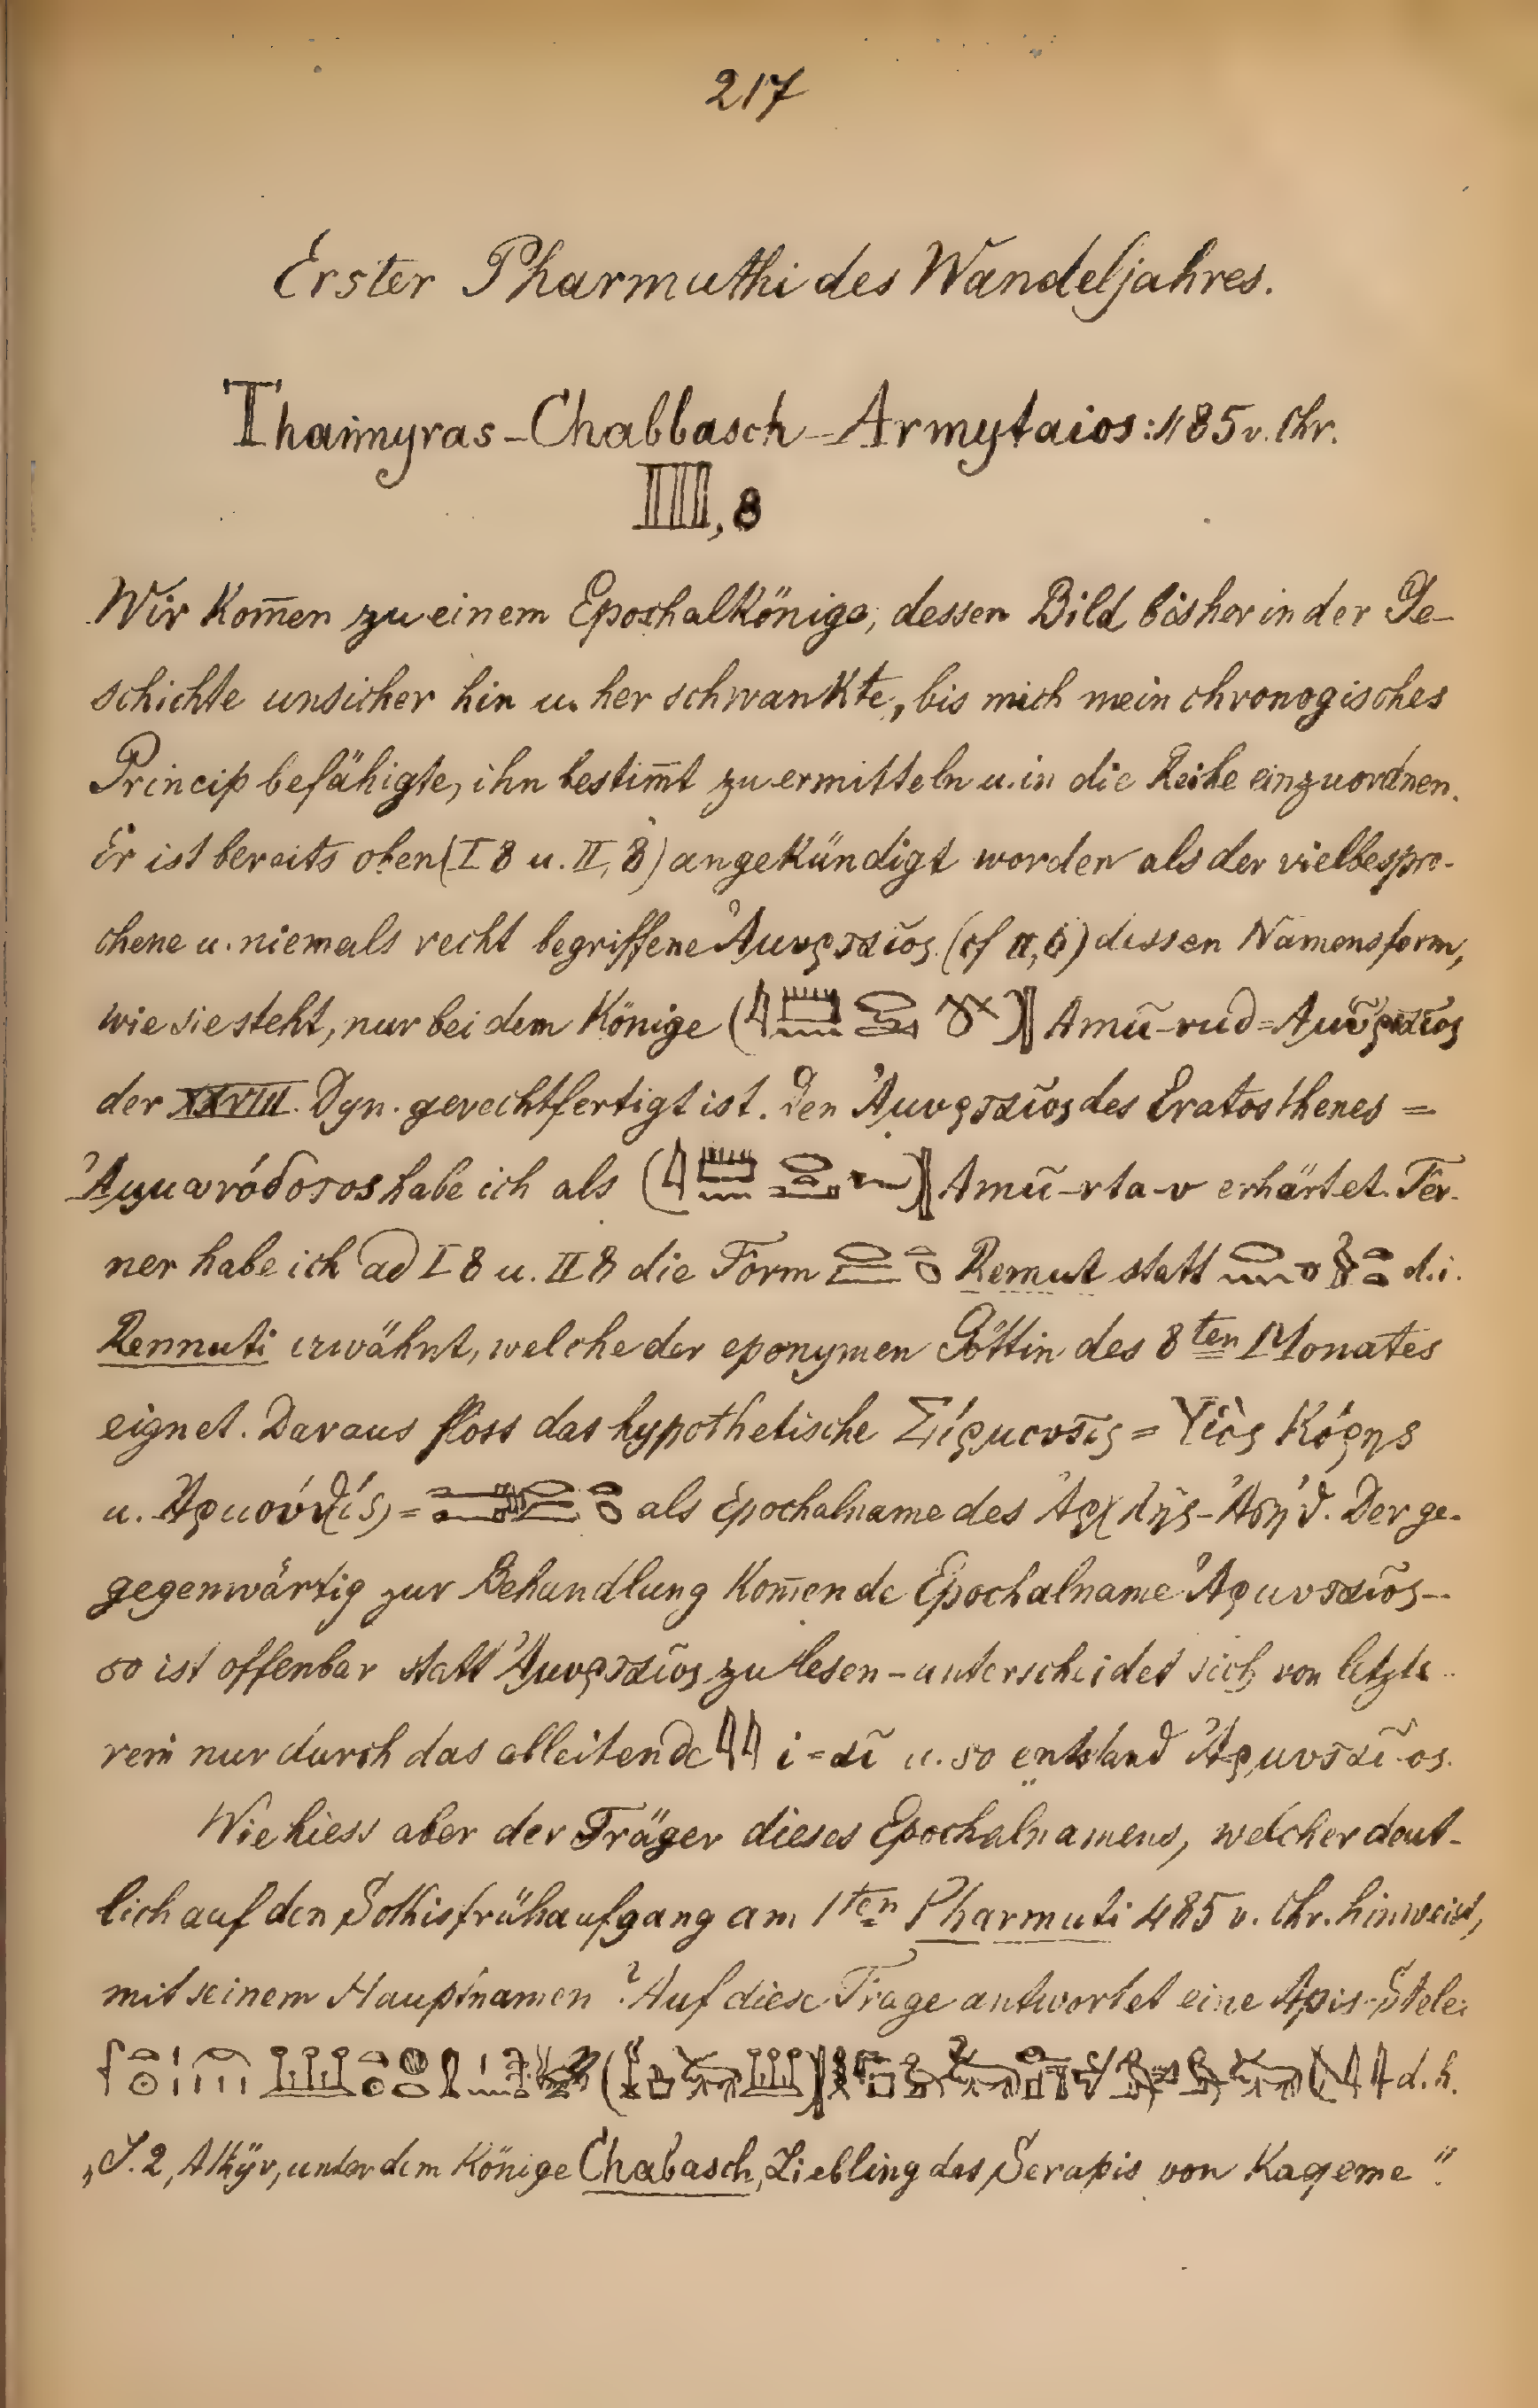 217
Erster Pharmuthi des Wandeljahres.
Thamyras-Chabbasch-Armytaios: 485 v. Chr.
IIII, 8
Wir kom̄en zu einem Epochalkönige, dessen Bild bisher in der Ge-
schichte unsicher hin u. her schwankte, bis mich mein chronogisches
Princip befähigte, ihn bestim̄t zu ermitteln u. in die Reihe einzuordnen.
Er ist bereits oben (I 8 u. II, 8) angekündigt worden als der vielbespro-
chene u. niemals recht begriffene Ἀμυρταῖος (cf II, 6) dessen Namensform,
wie sie steht, nur bei dem Könige Amũ-rud = Ἀμυρταῖος
der XXVIII. Dyn. gerechtfertigt ist. Den Ἀμυρταῖος des Eratosthenes =
habe ich als Amũ-rta-v erhärtet. Fer-
ner habe ich ad I 8 u. II 8 die Form Remut statt d.i.
Rennuti erwähnt, welche der eponymen Göttin des 8ten Monates
eignet. Daraus floss das hypothetische = Υἱὸς Κόρης
u. = als Epochalname des Der ge-
gegenwärtig zur Behandlung kom̄ende Epochalname Ἀρμυταῖος -
so ist offenbar statt Ἀμυρταῖος zu lesen - unterscheidet sich von letzte-
rem nur durch das ableitende 𓇋𓇋 i = αῖ u. so entstand Ἀρμυταῖ-ος.
Wie hiess aber der Träger dieses Epochalnamens, welcher deut-
lich auf den Sothisfrühaufgang am 1ten Pharmuti 485 v. Chr. hinweist,
mit seinem Hauptnamen? Auf diese Frage antwortet eine Apis-Stele:
d. h.
„J. 2, Athyr, unter dem Könige Chabasch, Liebling des Serapis von Kaqeme“.